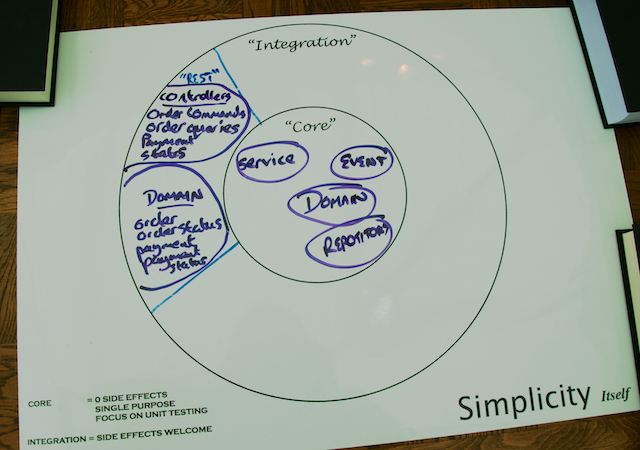 "Integration"
"REST"
controllers
Order Commands
order queries
Payment
states
DOMAIN
order
order status
payment
payment
status
"Core"
service
EVENT
DOMAIN
REPOSITORY
CORE = 0 SIDE EFFECTS
SINGLE PURPOSE
FOCUS ON UNIT TESTING
INTEGRATION = SIDE EFFECTS WELCOME
Simplicity Itself